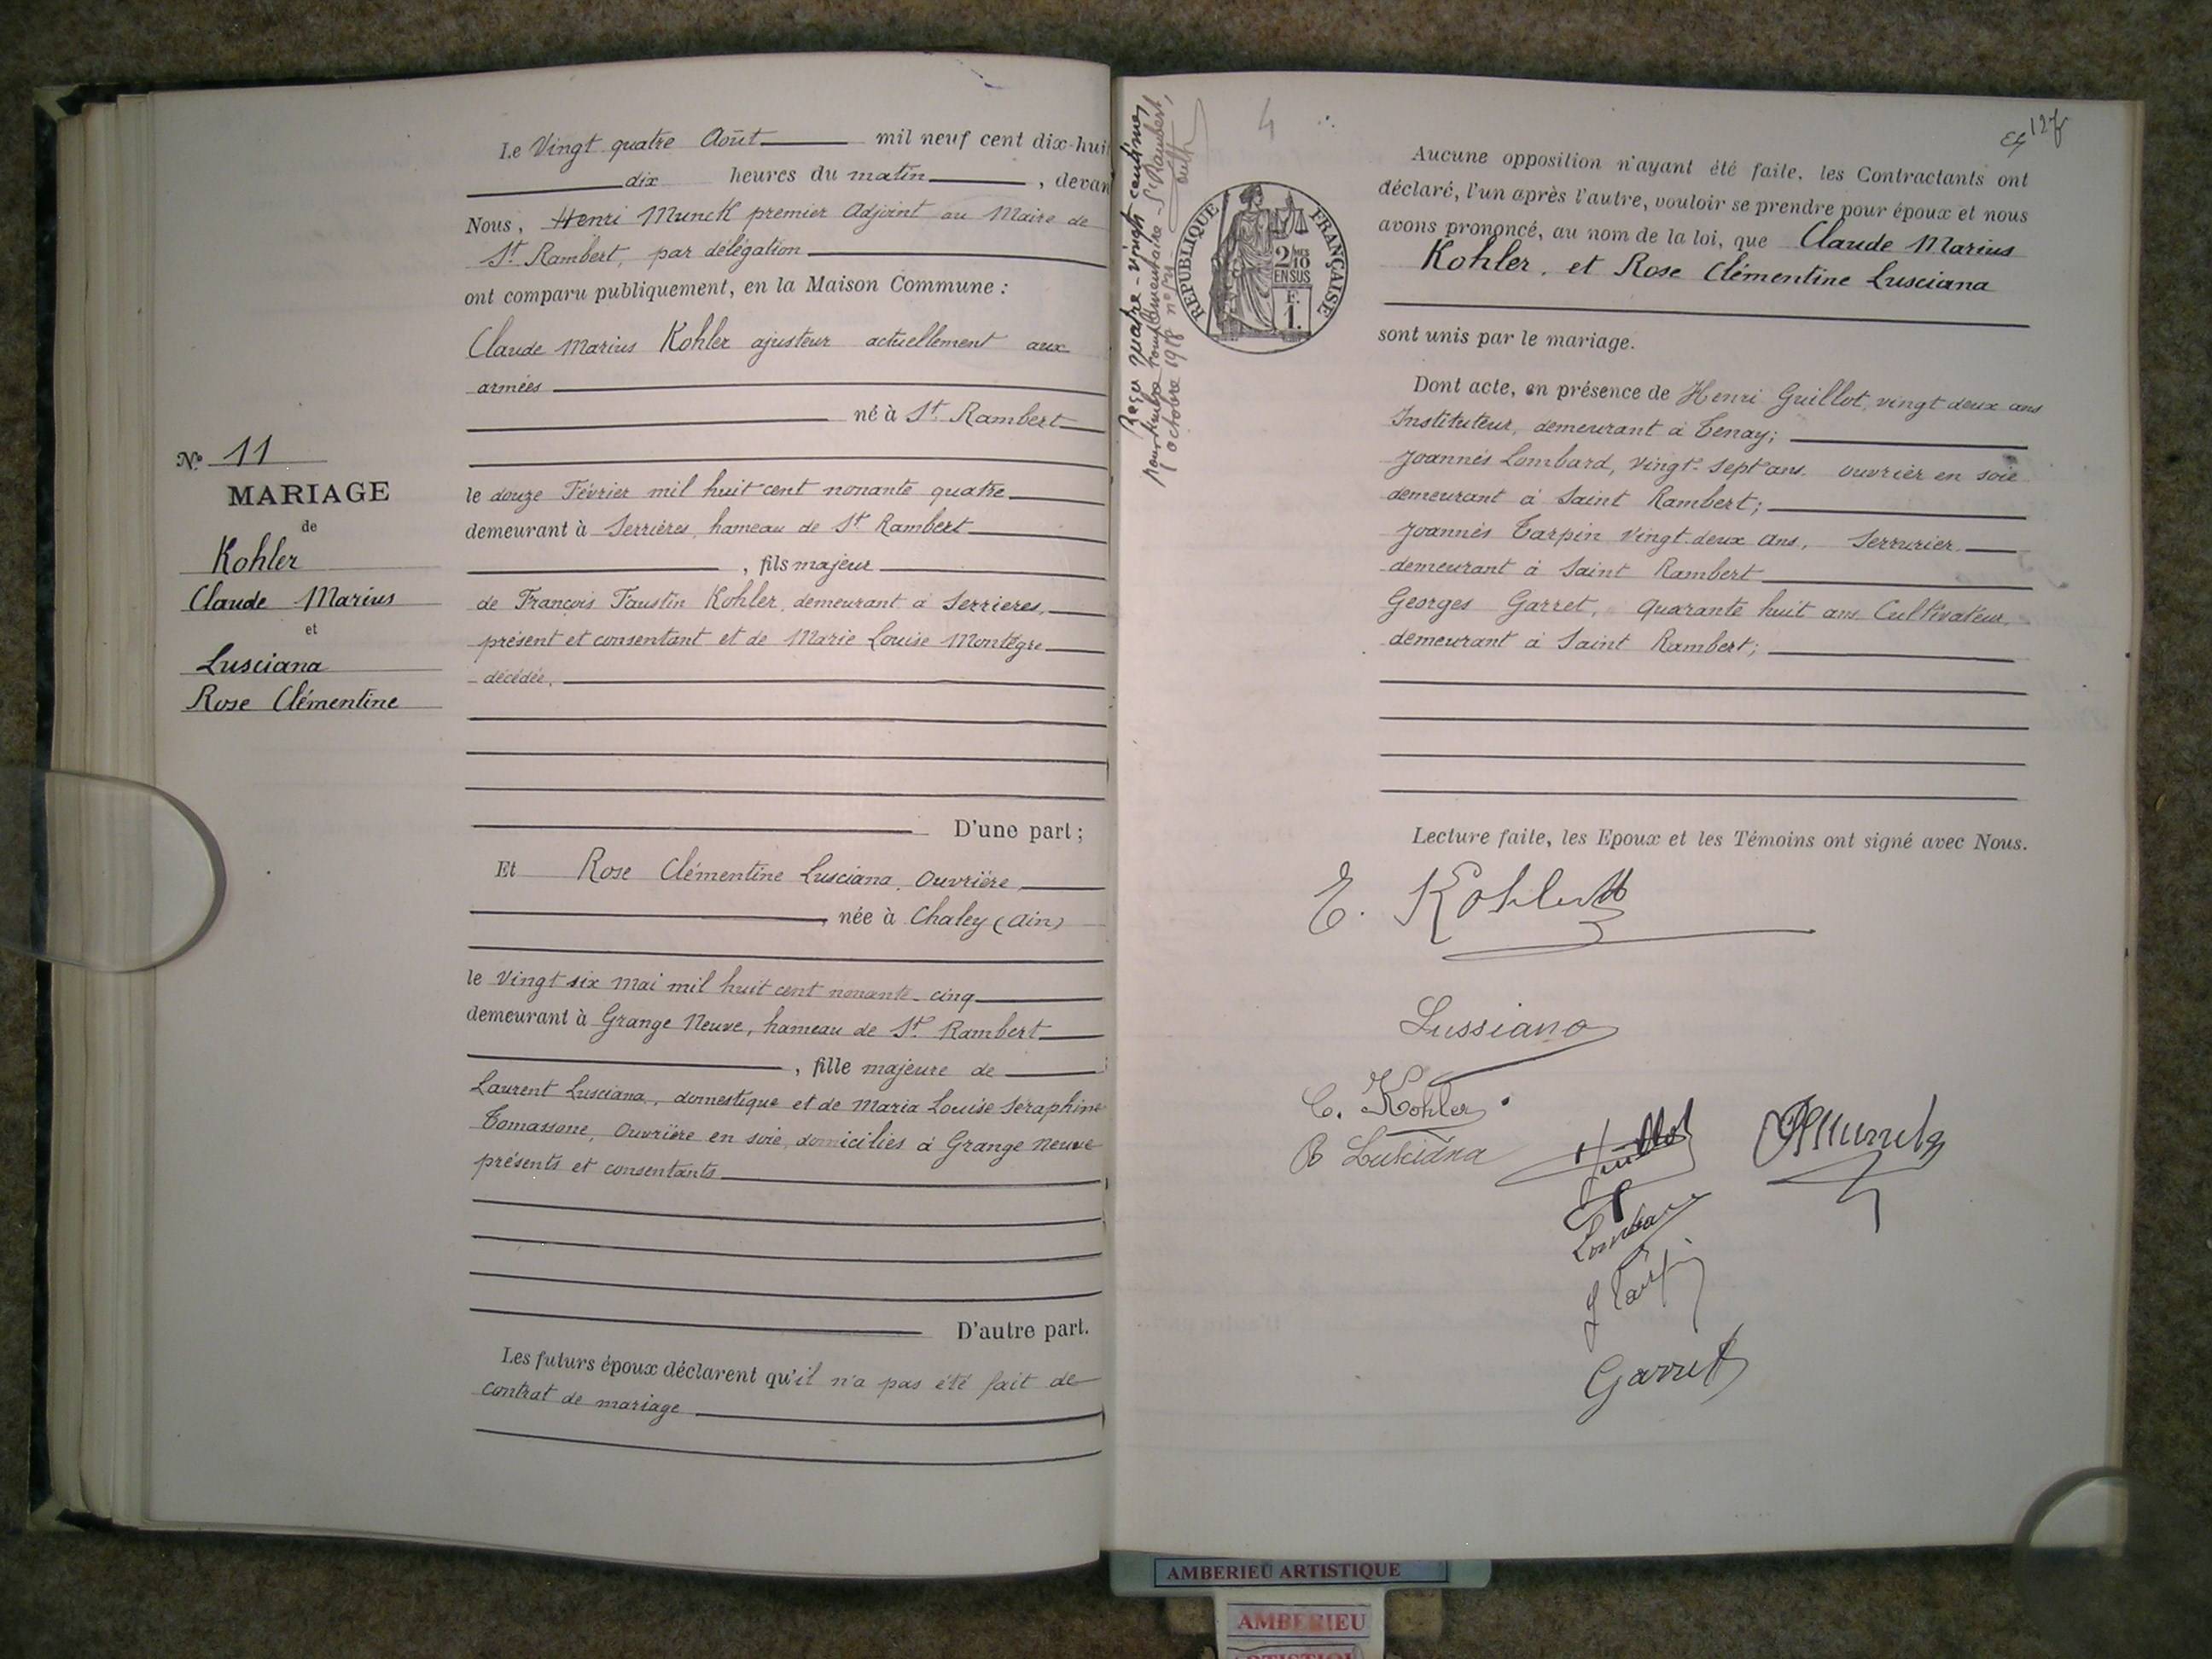 Nº 11
MARIAGE
de
Kohler
Claude Marius
et
Lusciana
Rose Clémentine
Le Vingt quatre Août mil neuf cent dix-hui
dix heures du matin, devan
Nous, Henri Munck premier Adjoint au Maire de
St. Rambert, par délégation
ont comparu publiquement, en la Maison Commune :
Claude Marius Kohler ajusteur actuellement aux
armées
né à St. Rambert
le douze Février mil huit cent nonante quatre
demeurant à Serrières, hameau de St. Rambert
, fils majeur
de François Faustin Kohler, demeurant à Serrières,
présent et consentant et de Marie Louise Montègre
décédée,
D'une part ;
Et Rose Clémentine Lusciana, Ouvrière,
, née à Chaley (Ain)
le Vingt six Mai mil huit cent nonante-cinq
demeurant à Grange Neuve, hameau de St. Rambert
, fille majeure de
Laurent Lusciana, domestique et de Maria Louise Séraphine
Tomassone, Ouvrière en soie, domiciliés à Grange Neuve
présents et consentants
D'autre part.
Les futurs époux déclarent qu'il n'a pas été fait de
contrat de mariage
Reçu quatre-vingt centimes
pour timbre complémentaire - St Rambert,
octobre 1918 nº
4
127
REPUBLIQUE FRANÇAISE
2/10
EN SUS
F.
1.
Aucune opposition n'ayant été faite, les Contractants ont
déclaré, l'un après l'autre, vouloir se prendre pour époux et nous
avons prononcé, au nom de la loi, que Claude Marius
Kohler, et Rose Clémentine Lusciana
sont unis par le mariage.
Dont acte, en présence de Henri Guillot, vingt deux ans
Instituteur, demeurant à Tenay;
Joannès Lombard, vingt-sept ans, ouvrier en soie
demeurant à Saint Rambert;
Joannès Tarpin vingt-deux ans, Serrurier
demeurant à Saint Rambert
Georges Garret, quarante huit ans, Cultivateur,
demeurant à Saint Rambert;
Lecture faite, les Epoux et les Témoins ont signé avec Nous.
E. Kohler
Lussiana
C. Kohler
R Luciana
Guillot
HMunck
Lombard
J Tarpin
Garret
AMBERIEU ARTISTIQUE
AMBERIEU
ARTISTIQUE